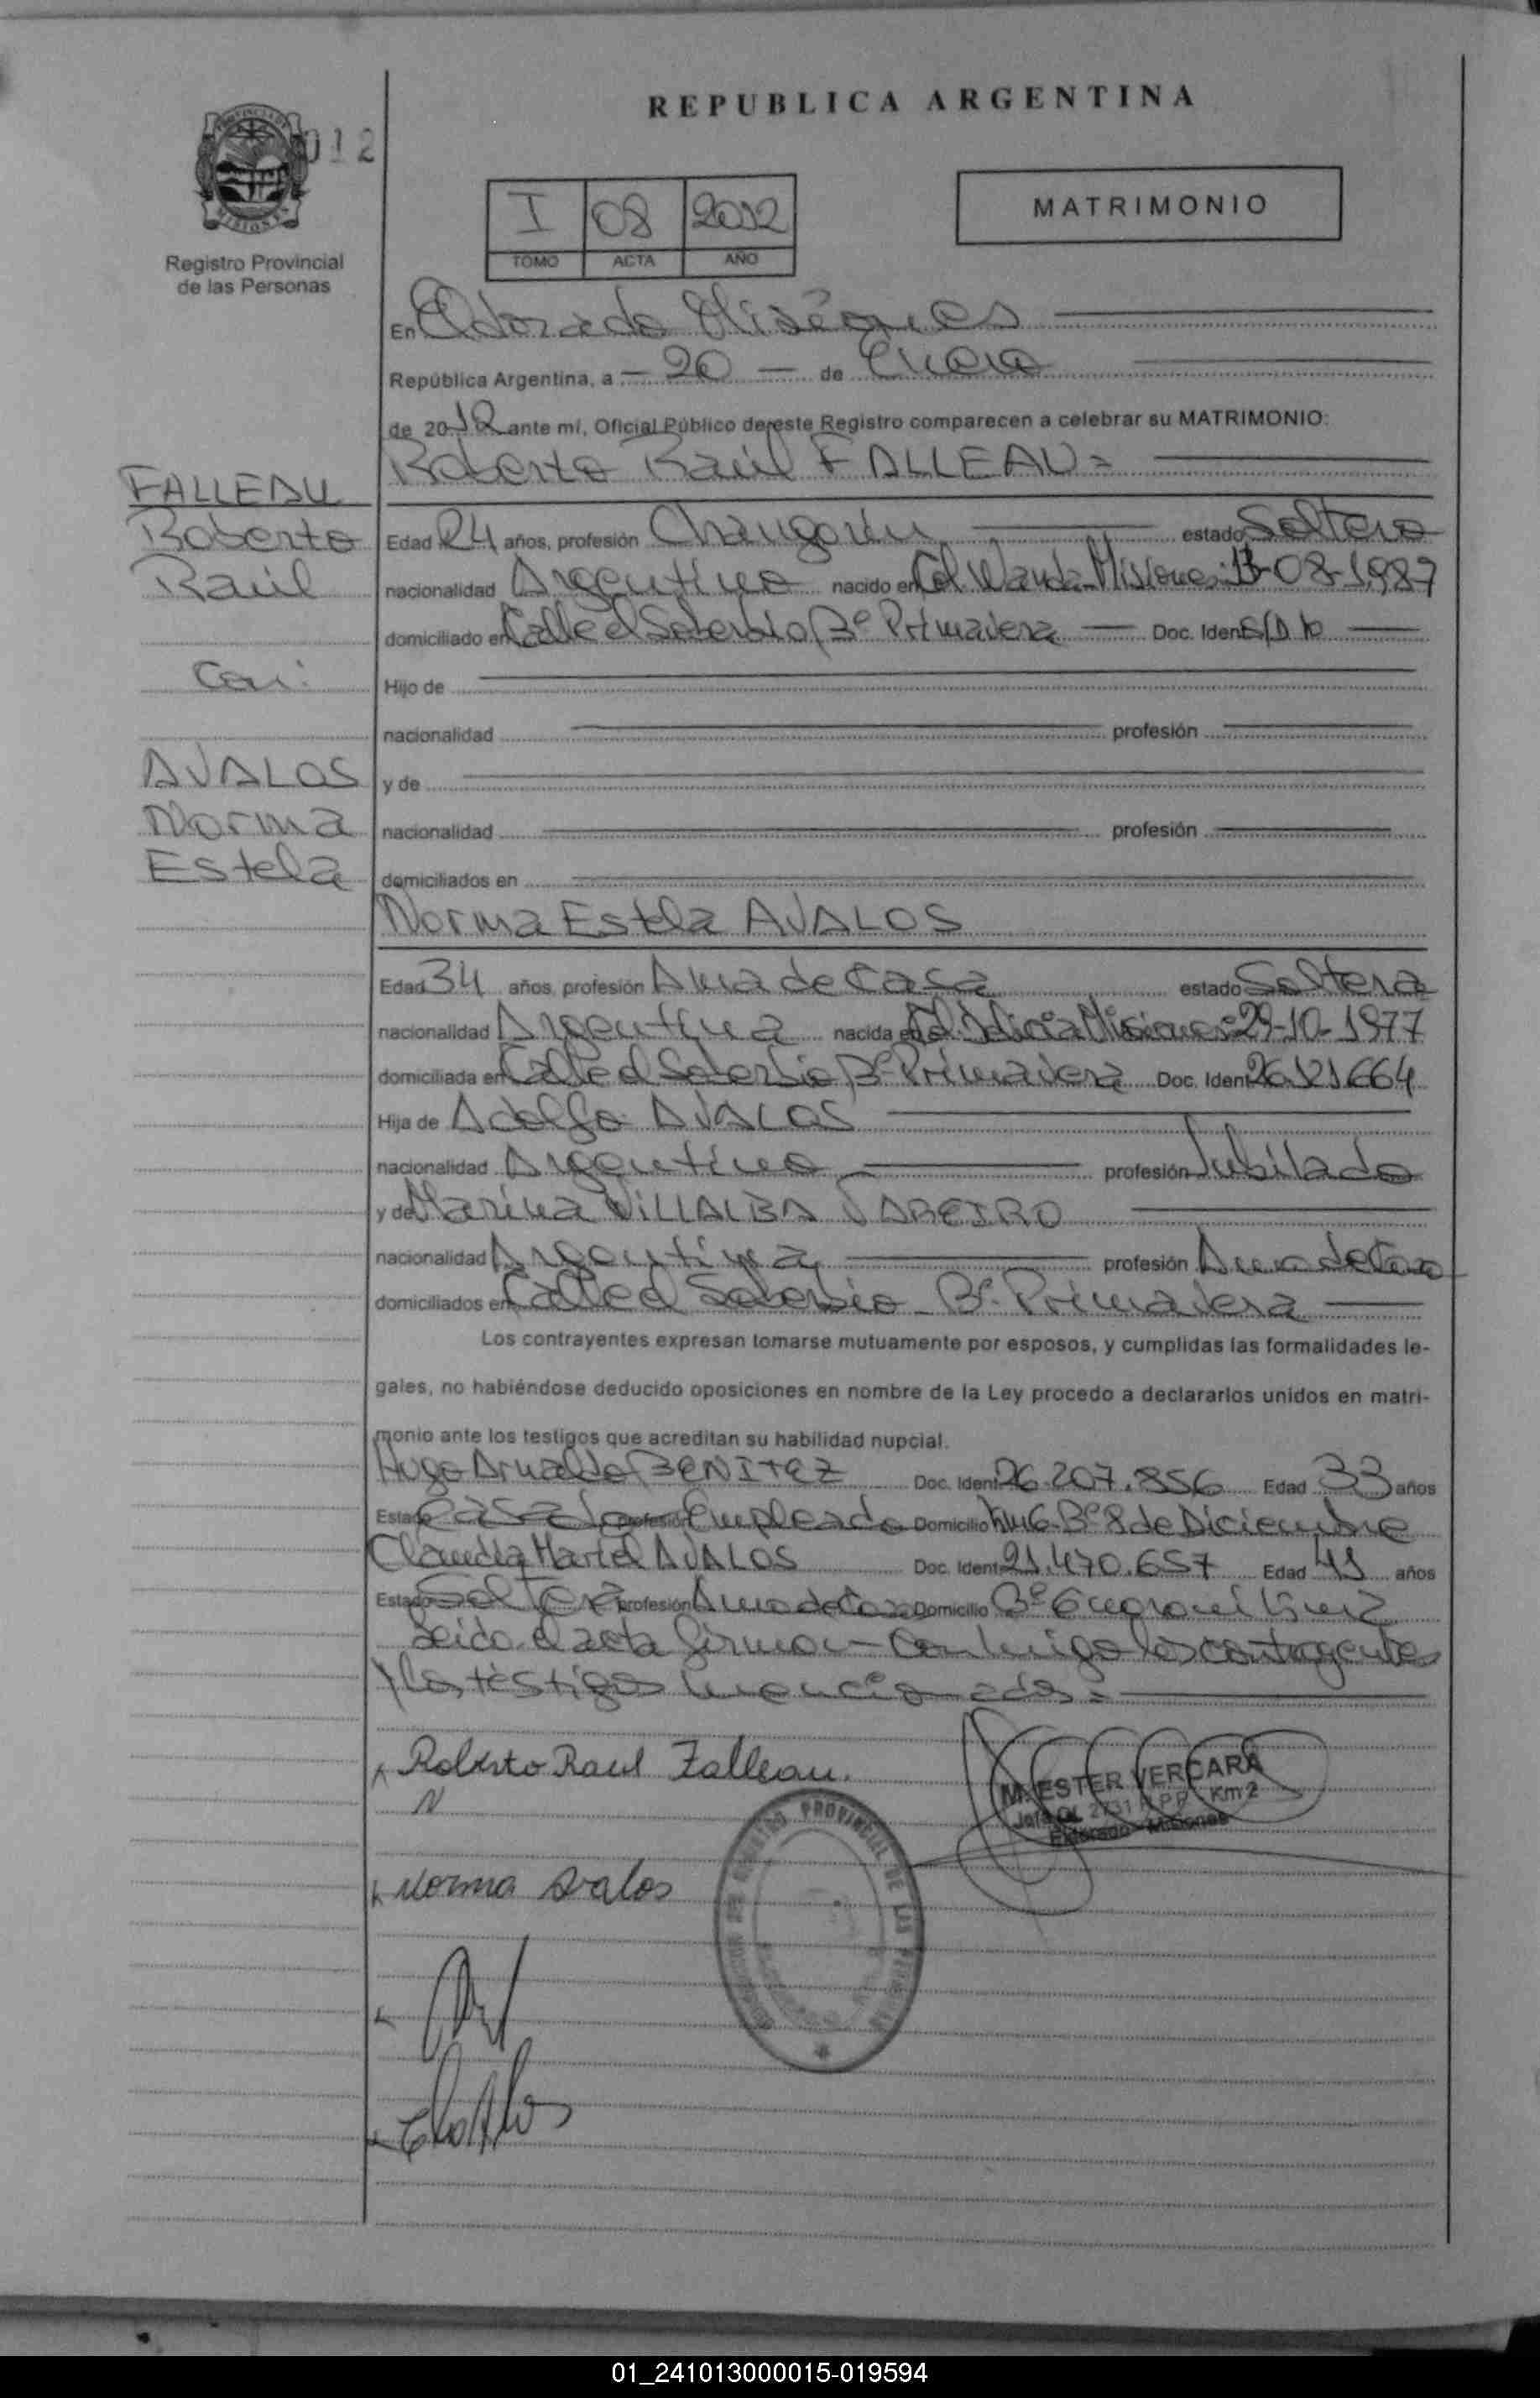 REPUBLICA ARGENTINA
012
PROVINCIA DE MISIONES
Registro Provincial
de las Personas
I 08 2012
TOMO ACTA AÑO
MATRIMONIO
En Eldorado Misiones
República Argentina, a - 20 - de Enero
de 2012 ante mí, Oficial Público de este Registro comparecen a celebrar su MATRIMONIO:
Roberto Raúl FALLEAU =
FALLEAU
Roberto
Raúl
Con:
AVALOS
Norma
Estela
Edad 24 años, profesión Changarín estado Soltero
nacionalidad Argentino nacido en Col. Wanda Misiones: 13-08-1.987
domiciliado en Calle el Soberbio Bº Primavera — Doc. Ident. S/D
Hijo de
nacionalidad profesión
y de
nacionalidad profesión
domiciliados en
Norma Estela AVALOS
Edad 34 años, profesión Ama de Casa estado Soltera
nacionalidad Argentina nacida en Col. Delicia Misiones: 29-10-1977
domiciliada en Calle el Soberbio Bº Primavera Doc. Ident. 26.121.664
Hija de Adolfo AVALOS
nacionalidad Argentino profesión Jubilado
y de Marina VILLALBA
nacionalidad Argentina profesión Ama de Casa
domiciliados en Calle el Soberbio - Bº Primavera
Los contrayentes expresan tomarse mutuamente por esposos, y cumplidas las formalidades le-
gales, no habiéndose deducido oposiciones en nombre de la Ley procedo a declararlos unidos en matri-
monio ante los testigos que acreditan su habilidad nupcial.
Hugo Arnaldo BENITEZ Doc. Ident. 26.207.856 Edad 33 años
Estado Casado profesión Empleado Domicilio km 6. Bº 8 de Diciembre
Claudia Mariel AVALOS Doc. Ident. 21.470.657 Edad 41 años
Estado Soltera profesión Ama de Casa Domicilio Bº
Leido el acta firman - conmigo los contrayentes
y los testigos mencionados =
Roberto Raul Falleau.
M. ESTER VERGARA
Jefe Of. 2731 R.P.P. Km 2
Eldorado - Misiones
REGISTRO PROVINCIAL DE LAS PERSONAS
Norma Avalos
01_241013000015-019594